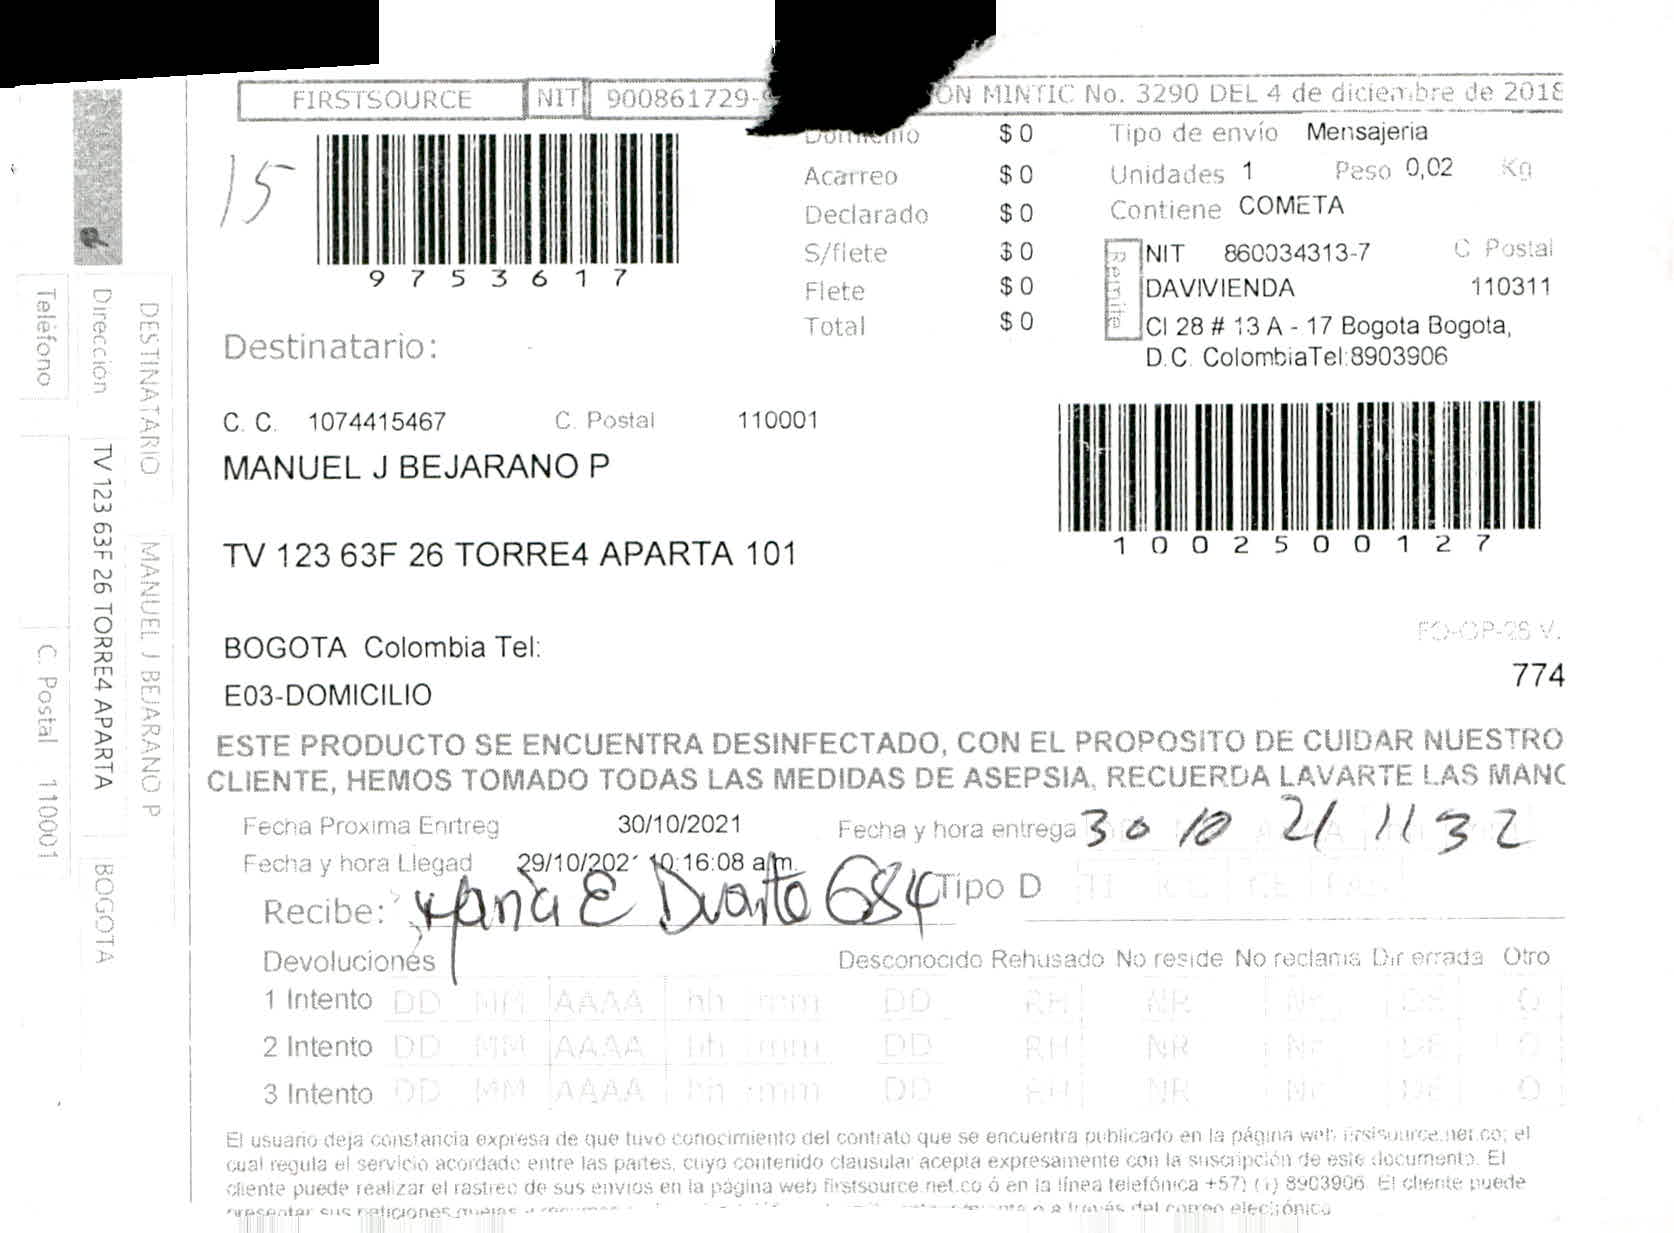 FIRSTSOURCE NIT 900861729- ON MINTIC No. 3290 DEL 4 de diciembre de 2018
15
9753617
Domicilio $ 0
Acarreo $ 0
Declarado $ 0
S/flete $ 0
Flete $ 0
Total $ 0
Tipo de envío Mensajeria
Unidades 1 Peso 0,02 Kg
Contiene COMETA
Remite
NIT 860034313-7 C Postal
DAVIVIENDA 110311
Cl 28 # 13 A - 17 Bogota Bogota,
D.C. ColombiaTel:8903906
1002500127
Destinatario:
C. C. 1074415467 C. Postal 110001
MANUEL J BEJARANO P
TV 123 63F 26 TORRE4 APARTA 101
BOGOTA Colombia Tel:
E03-DOMICILIO
FO-OP-26 V.
774
ESTE PRODUCTO SE ENCUENTRA DESINFECTADO, CON EL PROPOSITO DE CUIDAR NUESTRO
CLIENTE, HEMOS TOMADO TODAS LAS MEDIDAS DE ASEPSIA, RECUERDA LAVARTE LAS MANO
Fecha Proxima Enrtreg 30/10/2021 Fecha y hora entrega 30 10 21 11 32
Fecha y hora Llegad 29/10/2021 10:16:08 a.m.
Recibe: Maria E Duarte 684 Tipo D
Devoluciones Desconocido Rehusado No reside No reclama Dir errada Otro
1 Intento DD MM AAAA hh mm DD RH NR NR DE O
2 Intento DD MM AAAA hh mm DD RH NR NR DE O
3 Intento DD MM AAAA hh mm DD RH NR NR DE O
El usuario deja constancia expresa de que tuvo conocimiento del contrato que se encuentra publicado en la página web firstsource.net.co; el
cual regula el servicio acordado entre las partes, cuyo contenido clausular acepta expresamente con la suscripción de este documento. El
cliente puede realizar el rastreo de sus envios en la página web firstsource.net.co ó en la línea telefónica +57) (1) 8903906 El cliente puede
presentar sus peticiones quejas o a través del correo electrónico
DESTINATARIO MANUEL J BEJARANO P
Dirección TV 123 63F 26 TORRE4 APARTA BOGOTA
Teléfono C. Postal 110001